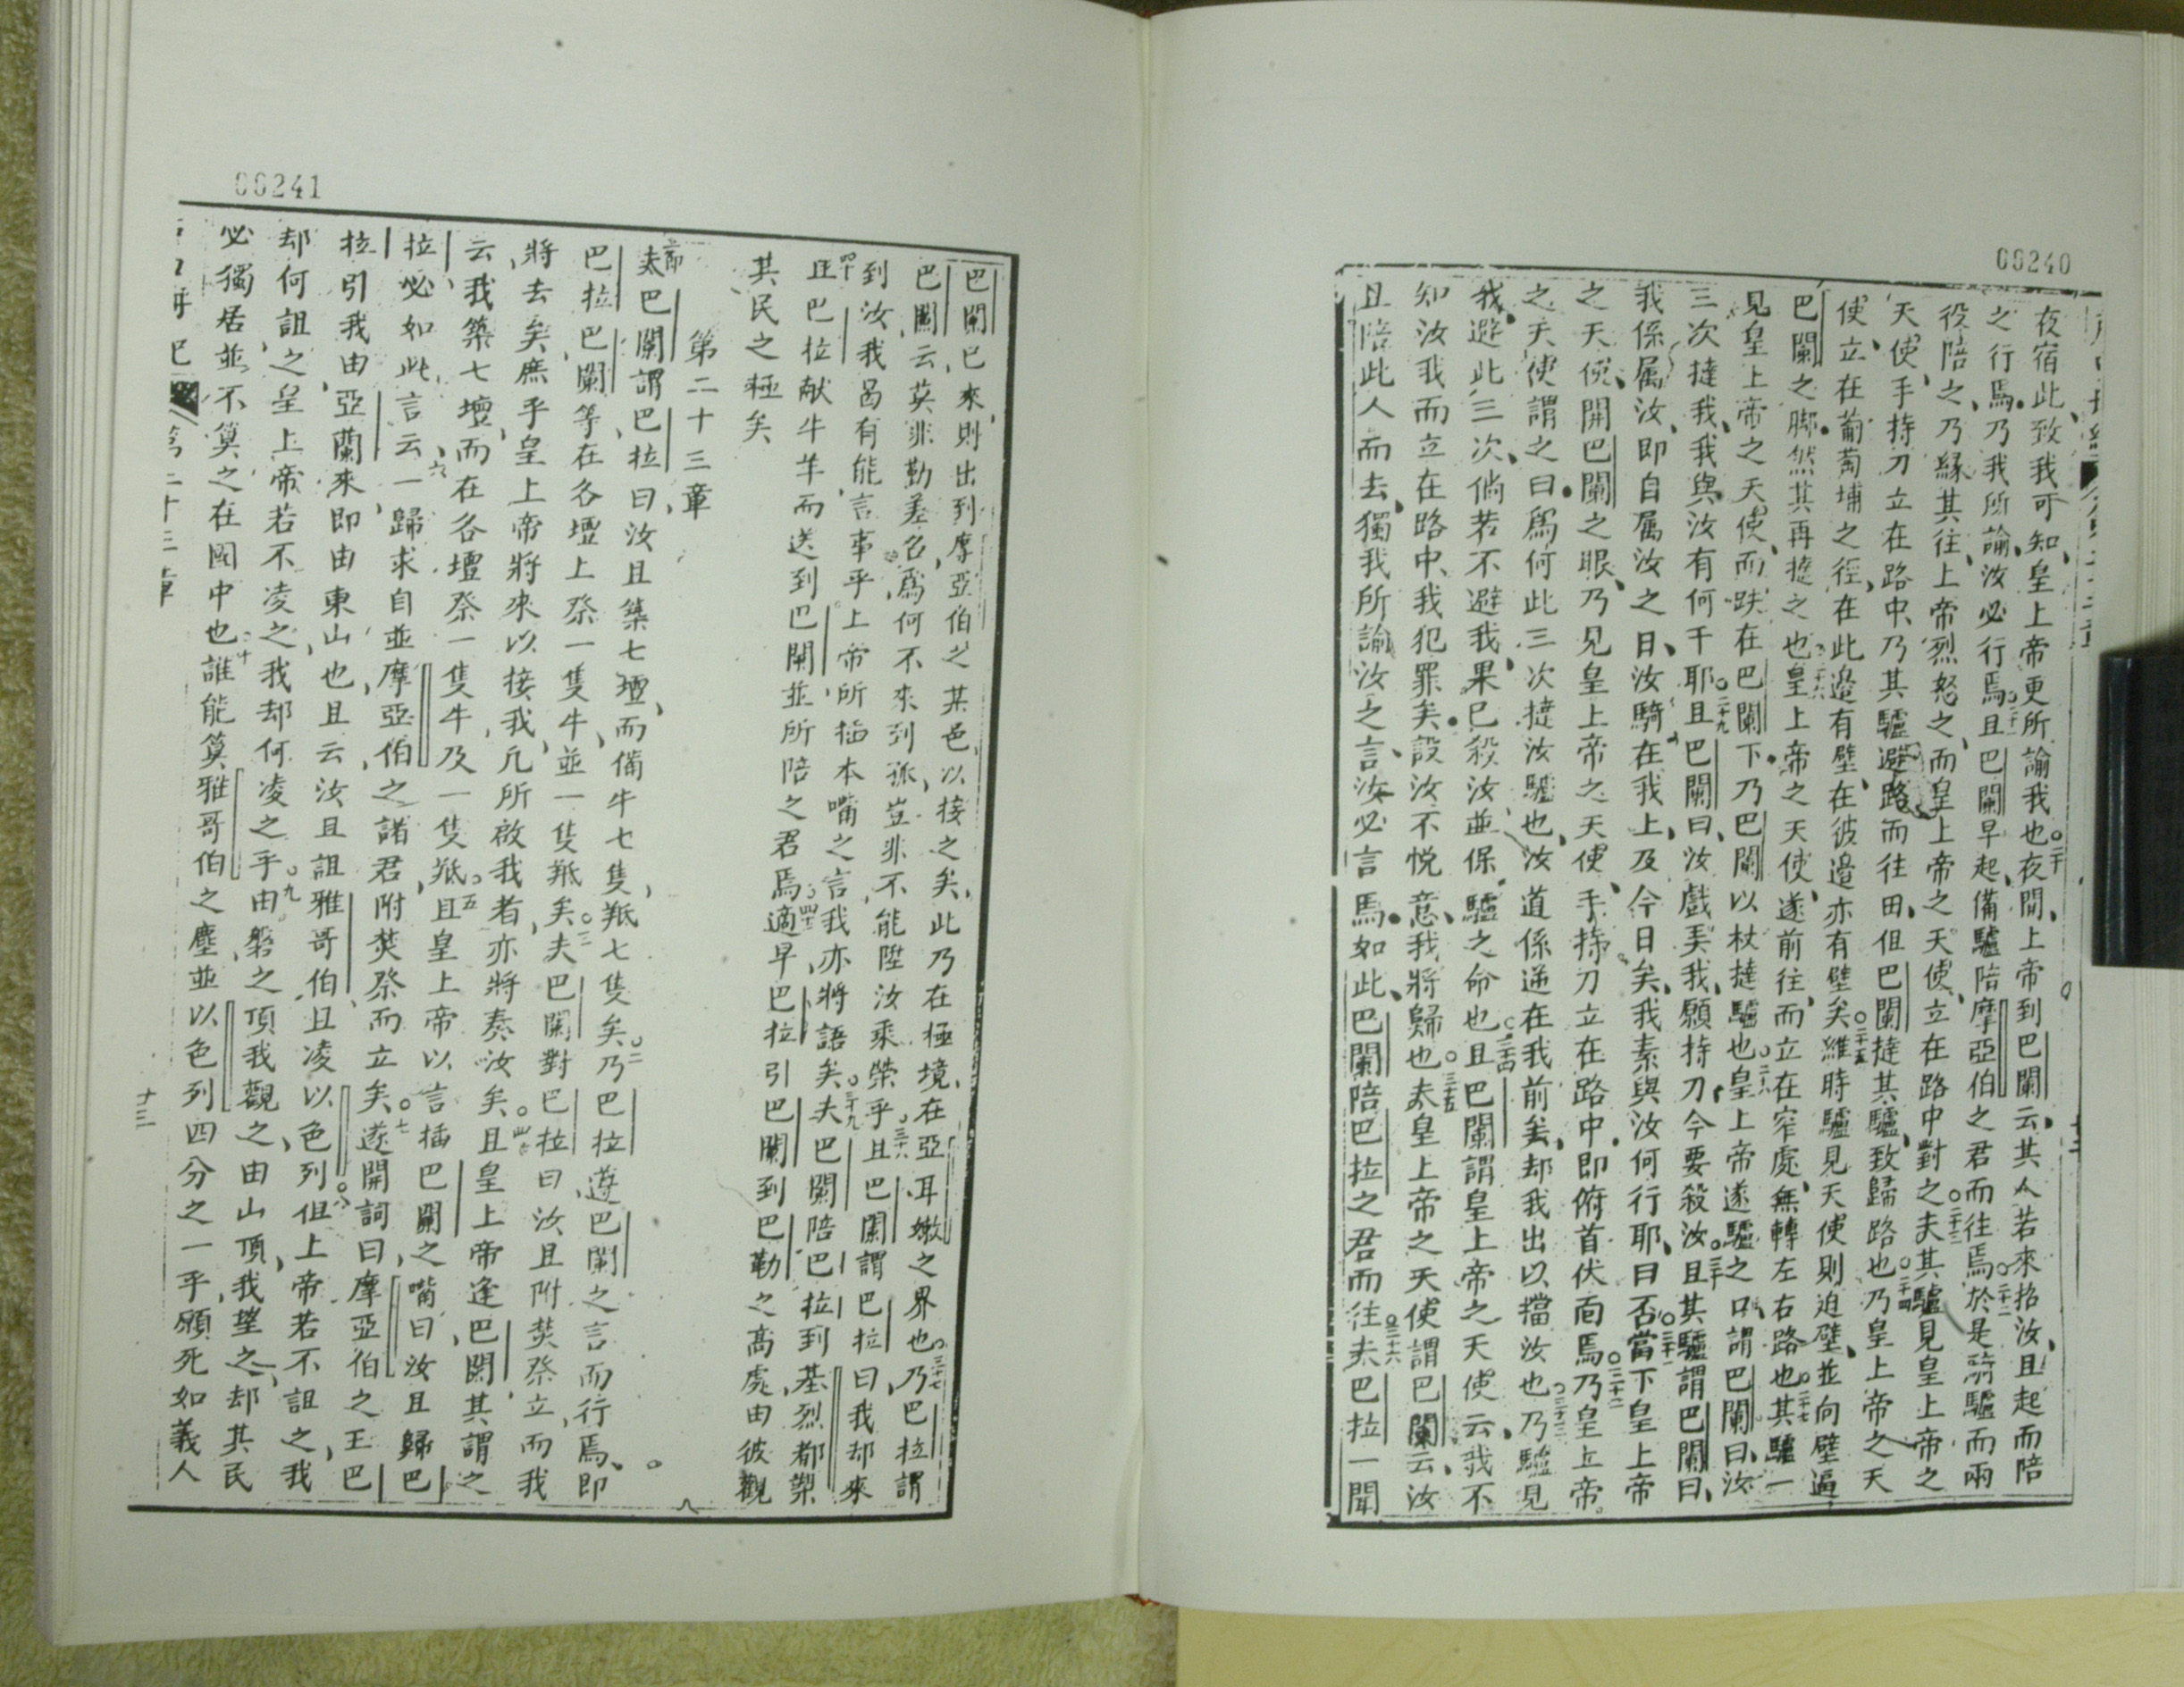 00240
夜宿此、致我可知、皇上帝更所諭我也。二十夜間、上帝到巴闌云、其人若來招汝、且起而陪
之行焉、乃我所諭、汝必行焉。二十一且巴闌早起、備驢陪摩亞伯之君而往焉。二十二於是騎驢而兩
役陪之、乃緣其往、上帝烈怒之、而皇上帝之天使、立在路中對之。二十三夫其驢見皇上帝之
天使、手持刀立在路中、乃其驢避路而往田、但巴闌撻其驢、致歸路也。二十四乃皇上帝之天
使、立在葡萄埔之徑、在此邊有壁、在彼邊亦有壁矣。二十五維時驢見天使則迫壁、並向壁逼
巴闌之腳、然其再撻之也。二十六皇上帝之天使、遂前往、而立在窄處、無轉左右路也。二十七其驢一
見皇上帝之天使、而跌在巴闌下、乃巴闌以杖撻驢也。二十八皇上帝遂驢之口、謂巴闌曰、汝
三次撻我、我與汝有何干耶。二十九且巴闌曰、汝戲弄我、願持刀今要殺汝。三十且其驢謂巴闌曰、
我係屬汝、即自屬汝之日、汝騎在我上、及今日矣、我素與汝何行耶、曰否。三十一當下皇上帝
之天使、開巴闌之眼、乃見皇上帝之天使、手持刀立在路中、即俯首伏面焉。三十二乃皇上帝
之天使謂之曰、爲何此三次撻汝驢也、汝道係逆在我前矣、却我出以擋汝也。三十三乃驢見
我、避此三次、倘若不避我、果已殺汝、並保驢之命也。三十四且巴闌謂皇上帝之天使云、我不
知汝我而立在路中、我犯罪矣、設汝不悅意、我將歸也。三十五夫皇上帝之天使謂巴闌云、汝
且陪此人而去、獨我所諭汝之言、汝必言焉、如此、巴闌陪巴拉之君而往。三十六夫巴拉一聞
00241
巴闌已來、則出到摩亞伯之某邑、以接之矣、此乃在極境、在亞耳嫩之界也。三十七乃巴拉謂
巴闌云、莫非勤差召、爲何不來到孤、豈非不能陞汝乘榮乎。三十八且巴闌謂巴拉曰、我却來
到汝、我曷有能言事乎、上帝所插本嘴之言、我亦將語矣。三十九夫巴闌陪巴拉到基烈都槊
四十且巴拉献牛羊而送到巴闌並所陪之君焉。四十一適早巴拉引巴闌到巴勒之高處、由彼觀
其民之極矣
第二十三章
夫巴闌謂巴拉曰、汝且築七壇、而備牛七隻、羝七隻矣。二乃巴拉遵巴闌之言而行焉、即
巴拉、巴闌等、在各壇上祭一隻牛、並一隻羝矣。三夫巴闌對巴拉曰、汝且附焚祭立、而我
將去矣、庶乎皇上帝將來以接我、凡所啟我者、亦將奏汝矣。四且皇上帝逢巴闌、其謂之
云、我築七壇、而在各壇祭一隻牛、及一隻羝。五且皇上帝以言插巴闌之嘴曰、汝且歸巴
拉、必如此言云。六一歸求自並摩亞伯之諸君、附焚祭而立矣。七遂開詞曰、摩亞伯之王巴
拉、引我由亞蘭來、即由東山也、且云、汝且詛雅哥伯、且凌以色列。八但上帝若不詛之、我
却何詛之、皇上帝若不凌之、我却何凌之乎。九由磐之頂我觀之、由山頂、我望之、却其民
必獨居、並不算之在國中也。十誰能算雅哥伯之塵、並以色列四分之一乎、願死如義人
第二十三章
十三